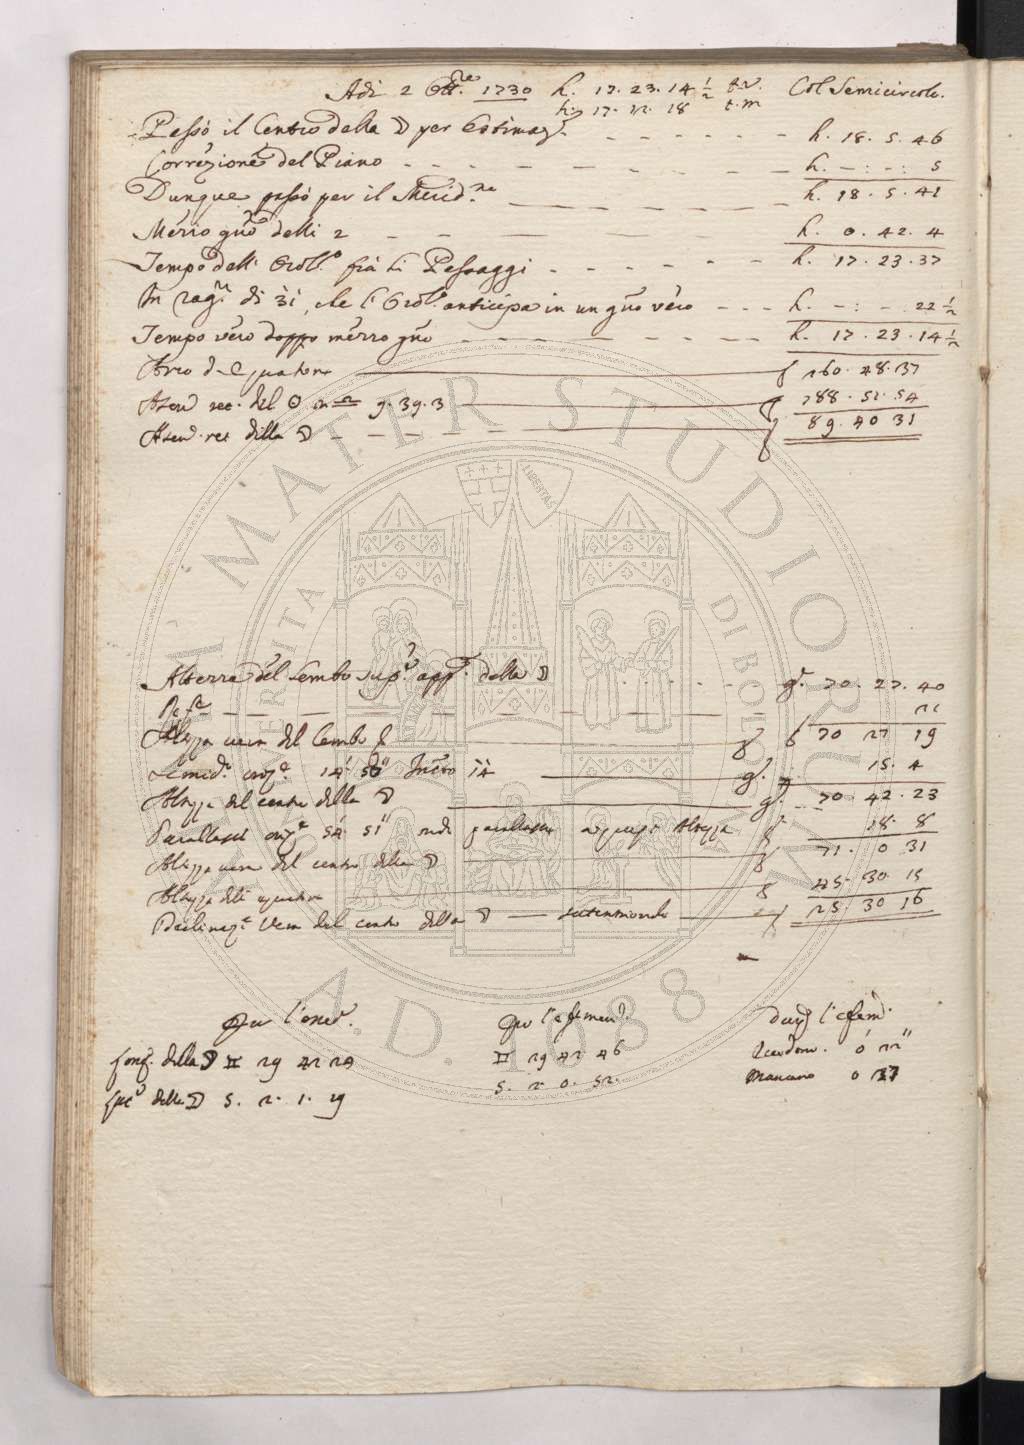 Adi 2 Ott.re 1730 h. 17. 23. 14 1/2 t.v. Col Semicircolo.
h. 17. 12. 18 t.m
Passò il Centro della ☽ per Estimaz.e - - - - - - h. 18. 5. 46
Correzione del Piano - - - - - - h. - : - : 5
Dunque passò per il Merid.no - - - - - h. 18. 5. 41
Mezzo gno delli 2 - - - h. 0. 42. 4
Tempo dell' Orol.o frà li Passaggi - - - - - - h. 17. 23. 37
In rag.e di 31, che l'Orol.o anticipa in un gno vero - - - h. - : - 22 1/2
Tempo vero doppo mezzo gno - - - - - - h. 17. 23. 14 1/2
Arco d'Equatore 260. 48. 37
Ascen. ret. del ☉ in ♎ 9. 39. 3 188. 51. 54
Ascen. ret della ☽ - - - - 89. 40 31
Altezza del Lembo sup.re app.e della ☽ - - - - - g. 70. 27. 40
Ref.e - - - - 21
Altezza vera del Lembo 70 27 19
Semid.o oriz.e 14' 50" In 14 g. 15. 4
Altezza del centro della ☽ g. 70. 42. 23
Parallasse oriz.e 54' 51" parallasse Altezza 18. 8
Altezza vera del centro della ☽ 71. 0 31
Altezza dell' equatore 45. 30 15
Declinaz.e Vera del centro della ☽ settentrionale 25. 30 16
Per l'oner. Per l'efemerid. l'efem.
Long. della ☽ ♊ 29 42 24 ♊ 29 42 46 Eccedono. 0' 22"
Lat. della ☽ 5. 2. 1. 29 5. 2. 0. 52. Mancano 0 37
ALMA MATER STUDIORUM
UNIVERSITÀ DI BOLOGNA
LIBERTAS
A.D. 1088